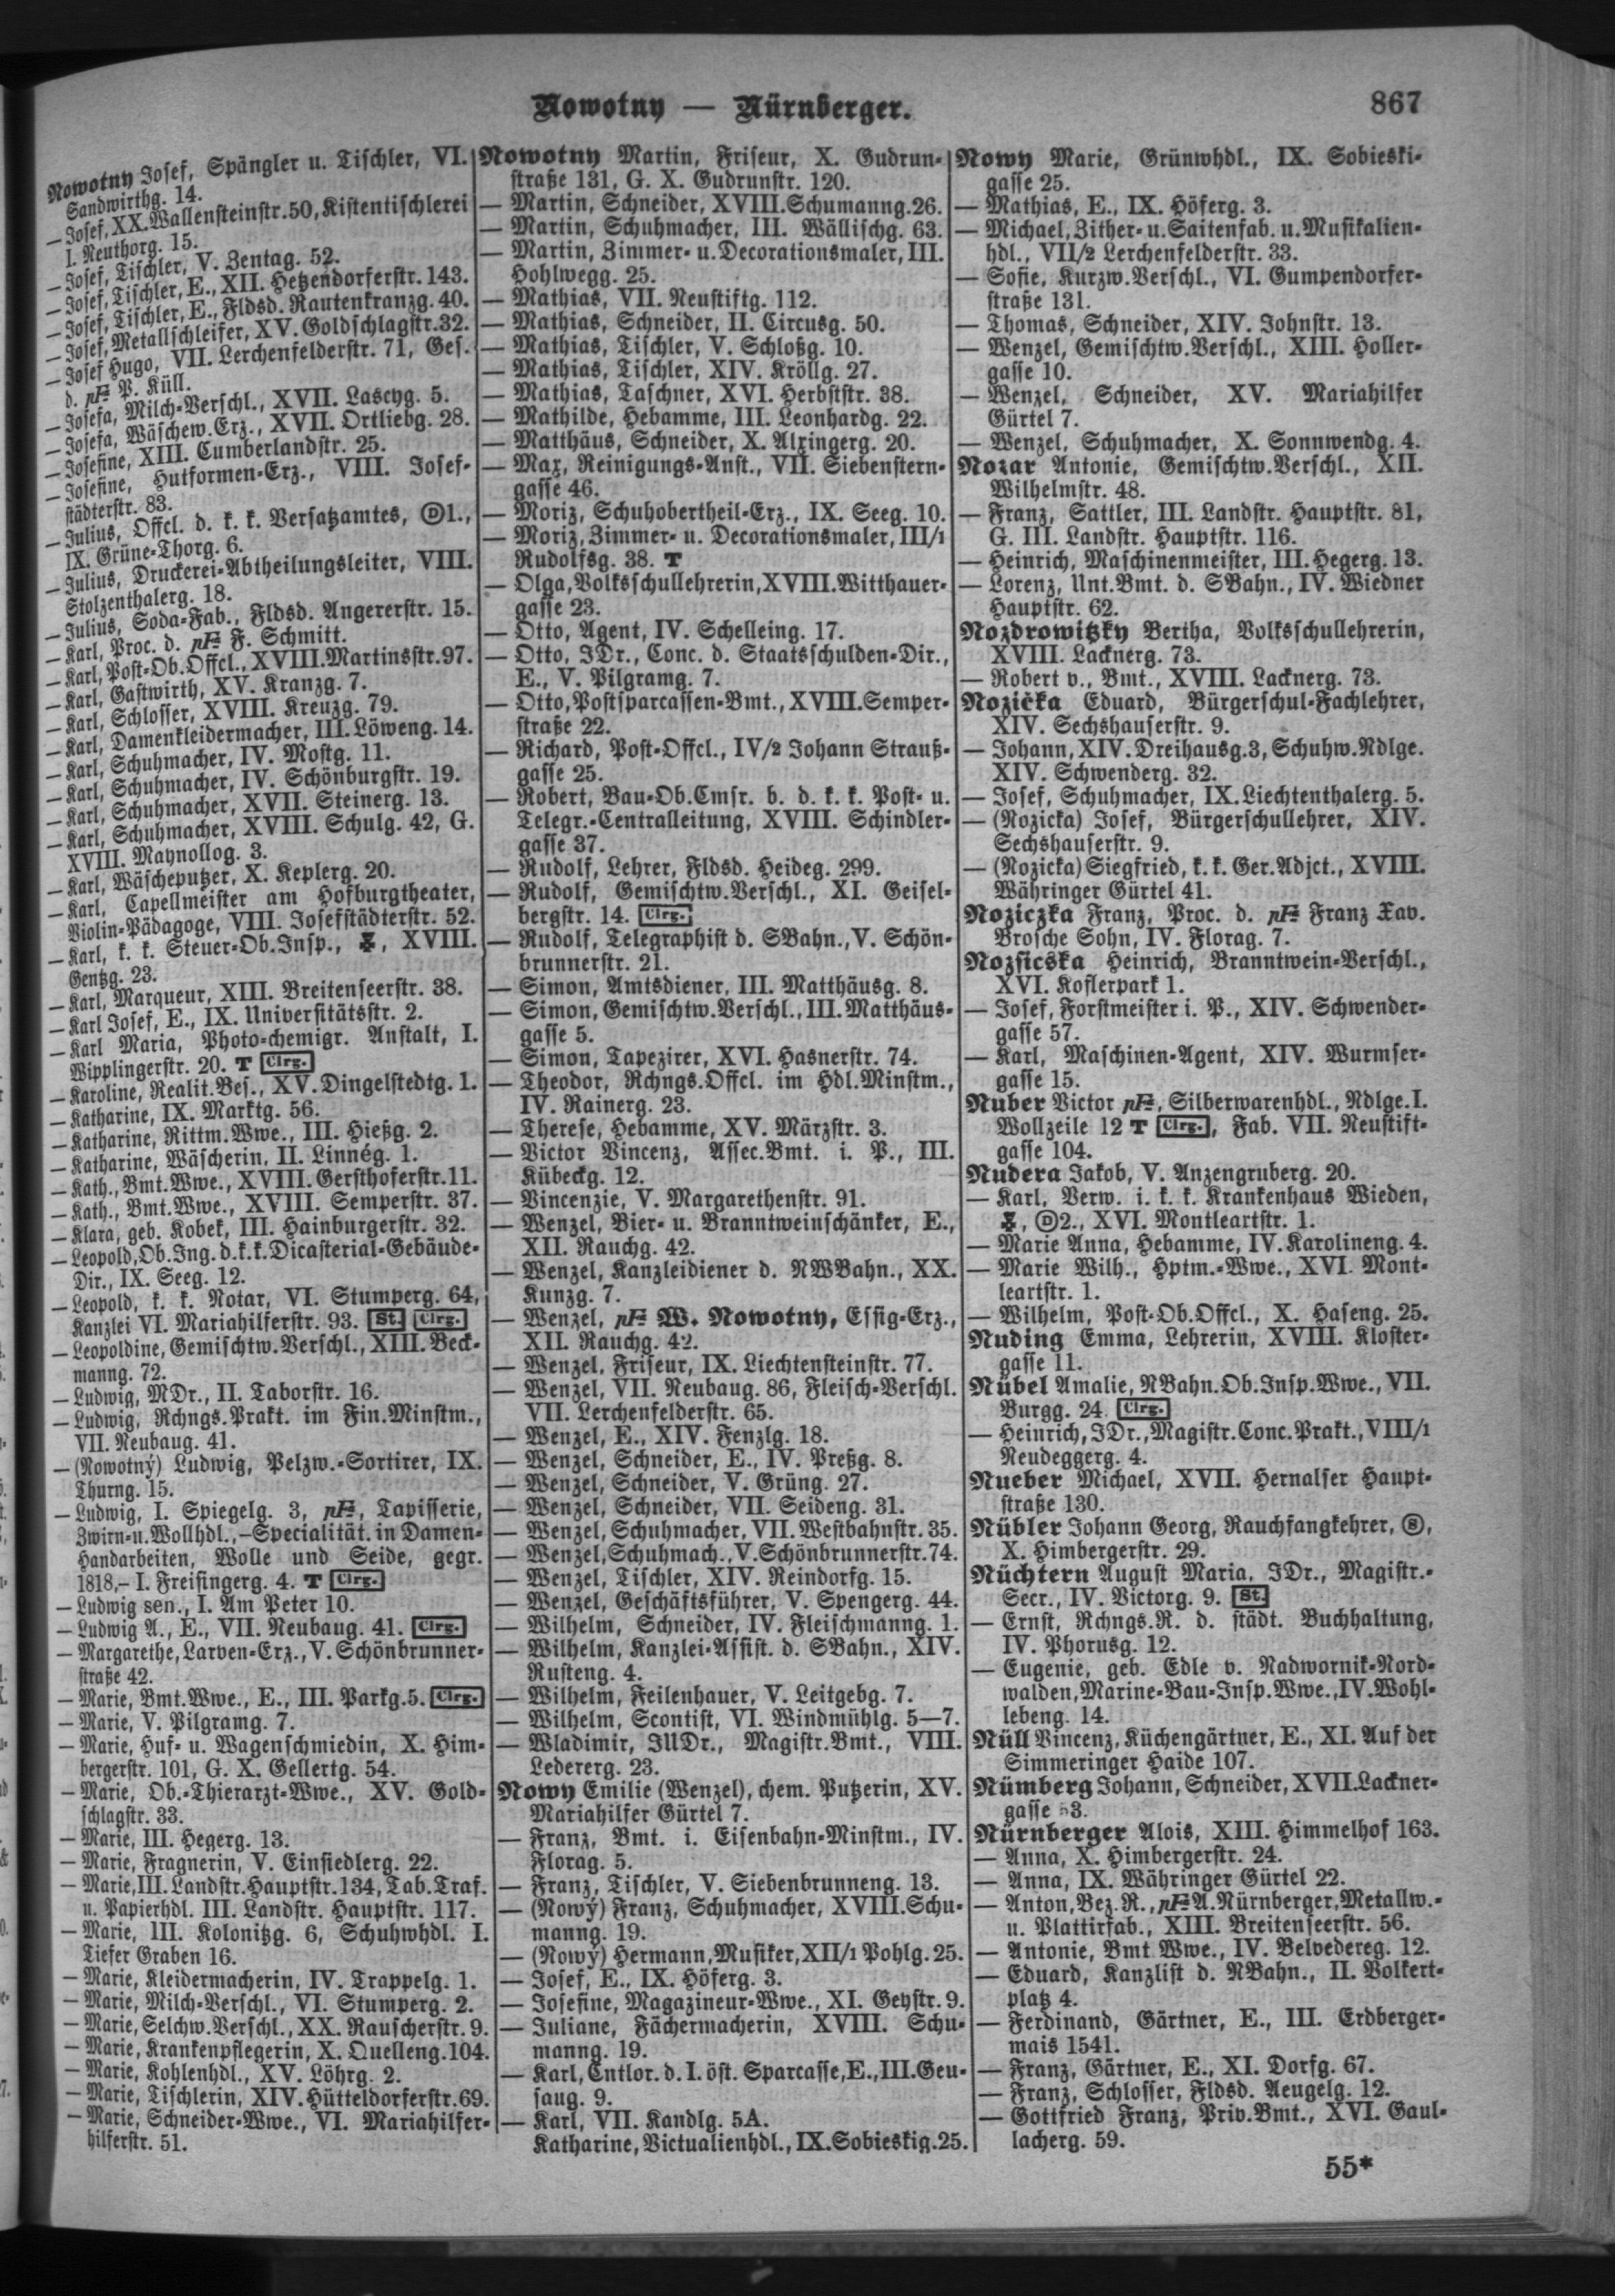 Nowotny — Nürnberger.
867
Nowotny Josef, Spängler u. Tischler, VI.
Sandwirthg. 14.
— Josef, XX. Wallensteinstr. 50, Kistentischlerei
I. Neuthorg. 15.
— Josef, Tischler, V. Zentag. 52.
— Josef, Tischler, E., XII. Hetzendorferstr. 143.
— Josef, Tischler, E., Fldsd. Rautenkranzg. 40.
— Josef, Metallschleifer, XV. Goldschlagstr. 32.
— Josef Hugo, VII. Lerchenfelderstr. 71, Ges.
d. pF P. Küll.
— Josefa, Milch-Verschl., XVII. Lascyg. 5.
— Josefa, Wäschew. Erz., XVII. Ortliebg. 28.
— Josefine, XIII. Cumberlandstr. 25.
— Josefine, Hutformen-Erz., VIII. Josef-
städterstr. 83.
— Julius, Offcl. d. k. k. Versatzamtes, Ⓓ1.,
IX. Grüne-Thorg. 6.
— Julius, Druckerei-Abtheilungsleiter, VIII.
Stolzenthalerg. 18.
— Julius, Soda-Fab., Fldsd. Angererstr. 15.
— Karl, Proc. d. pF F. Schmitt.
— Karl, Post-Ob. Offcl., XVIII. Martinsstr. 97.
— Karl, Gastwirth, XV. Kranzg. 7.
— Karl, Schlosser, XVIII. Kreuzg. 79.
— Karl, Damenkleidermacher, III. Löweng. 14.
— Karl, Schuhmacher, IV. Mostg. 11.
— Karl, Schuhmacher, IV. Schönburgstr. 19.
— Karl, Schuhmacher, XVII. Steinerg. 13.
— Karl, Schuhmacher, XVIII. Schulg. 42, G.
XVIII. Maynollog. 3.
— Karl, Wäscheputzer, X. Keplerg. 20.
— Karl, Capellmeister am Hofburgtheater,
Violin-Pädagoge, VIII. Josefstädterstr. 52.
— Karl, k. k. Steuer-Ob. Insp., XVIII.
Gentzg. 23.
— Karl, Marqueur, XIII. Breitenseerstr. 38.
— Karl Josef, E., IX. Universitätsstr. 2.
— Karl Maria, Photo-chemigr. Anstalt, I.
Wipplingerstr. 20. T Clrg.
— Karoline, Realit. Bes., XV. Dingelstedtg. 1.
— Katharine, IX. Marktg. 56.
— Katharine, Rittm. Wwe., III. Hießg. 2.
— Katharine, Wäscherin, II. Linnég. 1.
— Kath., Bmt. Wwe., XVIII. Gersthoferstr. 11.
— Kath., Bmt. Wwe., XVIII. Semperstr. 37.
— Klara, geb. Kobek, III. Hainburgerstr. 32.
— Leopold, Ob. Ing. d. k. k. Dicasterial-Gebäude-
Dir., IX. Seeg. 12.
— Leopold, k. k. Notar, VI. Stumperg. 64,
Kanzlei VI. Mariahilferstr. 93. St. Clrg.
— Leopoldine, Gemischtw. Verschl., XIII. Beck-
manng. 72.
— Ludwig, MDr., II. Taborstr. 16.
— Ludwig, Rchngs. Prakt. im Fin. Minstm.,
VII. Neubaug. 41.
— (Nowotný) Ludwig, Pelzw.-Sortirer, IX.
Thurng. 15.
— Ludwig, I. Spiegelg. 3, pF, Tapisserie,
Zwirn- u. Wollhdl., — Specialität. in Damen-
Handarbeiten, Wolle und Seide, gegr.
1818, — I. Freisingerg. 4. T Clrg.
— Ludwig sen., I. Am Peter 10.
— Ludwig A., E., VII. Neubaug. 41. Clrg.
— Margarethe, Larven-Erz., V. Schönbrunner-
straße 42.
— Marie, Bmt. Wwe., E., III. Parkg. 5. Clrg.
— Marie, V. Pilgramg. 7.
— Marie, Huf- u. Wagenschmiedin, X. Him-
bergerstr. 101, G. X. Gellertg. 54.
— Marie, Ob.-Thierarzt-Wwe., XV. Gold-
schlagstr. 33.
— Marie, III. Hegerg. 13.
— Marie, Fragnerin, V. Einsiedlerg. 22.
— Marie, III. Landstr. Hauptstr. 134, Tab. Traf.
u. Papierhdl. III. Landstr. Hauptstr. 117.
— Marie, III. Kolonitzg. 6, Schuhwhdl. I.
Tiefer Graben 16.
— Marie, Kleidermacherin, IV. Trappelg. 1.
— Marie, Milch-Verschl., VI. Stumperg. 2.
— Marie, Selchw. Verschl., XX. Rauscherstr. 9.
— Marie, Krankenpflegerin, X. Quelleng. 104.
— Marie, Kohlenhdl., XV. Löhrg. 2.
— Marie, Tischlerin, XIV. Hütteldorferstr. 69.
— Marie, Schneider-Wwe., VI. Mariahilfer-
hilferstr. 51.
Nowotny Martin, Friseur, X. Gudrun-
straße 131, G. X. Gudrunstr. 120.
— Martin, Schneider, XVIII. Schumanng. 26.
— Martin, Schuhmacher, III. Wällischg. 63.
— Martin, Zimmer- u. Decorationsmaler, III.
Hohlwegg. 25.
— Mathias, VII. Neustiftg. 112.
— Mathias, Schneider, II. Circusg. 50.
— Mathias, Tischler, V. Schloßg. 10.
— Mathias, Tischler, XIV. Kröllg. 27.
— Mathias, Taschner, XVI. Herbststr. 38.
— Mathilde, Hebamme, III. Leonhardg. 22.
— Matthäus, Schneider, X. Alxingerg. 20.
— Max, Reinigungs-Anst., VII. Siebenstern-
gasse 46.
— Moriz, Schuhobertheil-Erz., IX. Seeg. 10.
— Moriz, Zimmer- u. Decorationsmaler, III/1
Rudolfsg. 38. T
— Olga, Volksschullehrerin, XVIII. Witthauer-
gasse 23.
— Otto, Agent, IV. Schelleing. 17.
— Otto, JDr., Conc. d. Staatsschulden-Dir.,
E., V. Pilgramg. 7.
— Otto, Postsparcassen-Bmt., XVIII. Semper-
straße 22.
— Richard, Post-Offcl., IV/2 Johann Strauß-
gasse 25.
— Robert, Bau-Ob. Cmsr. b. d. k. k. Post- u.
Telegr.-Centralleitung, XVIII. Schindler-
gasse 37.
— Rudolf, Lehrer, Fldsd. Heideg. 299.
— Rudolf, Gemischtw. Verschl., XI. Geisel-
bergstr. 14. Clrg.
— Rudolf, Telegraphist d. SBahn., V. Schön-
brunnerstr. 21.
— Simon, Amtsdiener, III. Matthäusg. 8.
— Simon, Gemischtw. Verschl., III. Matthäus-
gasse 5.
— Simon, Tapezirer, XVI. Hasnerstr. 74.
— Theodor, Rchngs. Offcl. im Hdl. Minstm.,
IV. Rainerg. 23.
— Therese, Hebamme, XV. Märzstr. 3.
— Victor Vincenz, Assec. Bmt. i. P., III.
Kübeckg. 12.
— Vincenzie, V. Margarethenstr. 91.
— Wenzel, Bier- u. Branntweinschänker, E.,
XII. Rauchg. 42.
— Wenzel, Kanzleidiener d. NWBahn., XX.
Kunzg. 7.
— Wenzel, pF W. Nowotny, Essig-Erz.,
XII. Rauchg. 42.
— Wenzel, Friseur, IX. Liechtensteinstr. 77.
— Wenzel, VII. Neubaug. 86, Fleisch-Verschl.
VII. Lerchenfelderstr. 65.
— Wenzel, E., XIV. Fenzlg. 18.
— Wenzel, Schneider, E., IV. Preßg. 8.
— Wenzel, Schneider, V. Grüng. 27.
— Wenzel, Schneider, VII. Seideng. 31.
— Wenzel, Schuhmacher, VII. Westbahnstr. 35.
— Wenzel, Schuhmach., V. Schönbrunnerstr. 74.
— Wenzel, Tischler, XIV. Reindorfg. 15.
— Wenzel, Geschäftsführer, V. Spengerg. 44.
— Wilhelm, Schneider, IV. Fleischmanng. 1.
— Wilhelm, Kanzlei-Assist. d. SBahn., XIV.
Rusteng. 4.
— Wilhelm, Feilenhauer, V. Leitgebg. 7.
— Wilhelm, Scontist, VI. Windmühlg. 5—7.
— Wladimir, JUDr., Magistr. Bmt., VIII.
Ledererg. 23.
Nowy Emilie (Wenzel), chem. Putzerin, XV.
Mariahilfer Gürtel 7.
— Franz, Bmt. i. Eisenbahn-Minstm., IV.
Florag. 5.
— Franz, Tischler, V. Siebenbrunneng. 13.
— (Nowý) Franz, Schuhmacher, XVIII. Schu-
manng. 19.
— (Nowý) Hermann, Musiker, XII/1 Pohlg. 25.
— Josef, E., IX. Höferg. 3.
— Josefine, Magazineur-Wwe., XI. Geystr. 9.
— Juliane, Fächermacherin, XVIII. Schu-
manng. 19.
— Karl, Cntlor. d. I. öst. Sparcasse, E., III. Geu-
saug. 9.
— Karl, VII. Kandlg. 5A.
Katharine, Victualienhdl., IX. Sobieskig. 25.
Nowy Marie, Grünwhdl., IX. Sobieski-
gasse 25.
— Mathias, E., IX. Höferg. 3.
— Michael, Zither- u. Saitenfab. u. Musikalien-
hdl., VII/2 Lerchenfelderstr. 33.
— Sofie, Kurzw. Verschl., VI. Gumpendorfer-
straße 131.
— Thomas, Schneider, XIV. Johnstr. 13.
— Wenzel, Gemischtw. Verschl., XIII. Holler-
gasse 10.
— Wenzel, Schneider, XV. Mariahilfer
Gürtel 7.
— Wenzel, Schuhmacher, X. Sonnwendg. 4.
Nozar Antonie, Gemischtw. Verschl., XII.
Wilhelmstr. 48.
— Franz, Sattler, III. Landstr. Hauptstr. 81,
G. III. Landstr. Hauptstr. 116.
— Heinrich, Maschinenmeister, III. Hegerg. 13.
— Lorenz, Unt. Bmt. d. SBahn., IV. Wiedner
Hauptstr. 62.
Nozdrowitzky Bertha, Volksschullehrerin,
XVIII. Lacknerg. 73.
— Robert v., Bmt., XVIII. Lacknerg. 73.
Nozička Eduard, Bürgerschul-Fachlehrer,
XIV. Sechshauserstr. 9.
— Johann, XIV. Dreihausg. 3, Schuhw. Ndlge.
XIV. Schwenderg. 32.
— Josef, Schuhmacher, IX. Liechtenthalerg. 5.
— (Nozicka) Josef, Bürgerschullehrer, XIV.
Sechshauserstr. 9.
— (Nozicka) Siegfried, k. k. Ger. Adjct., XVIII.
Währinger Gürtel 41.
Noziczka Franz, Proc. d. pF Franz Xav.
Brosche Sohn, IV. Florag. 7.
Nozsicska Heinrich, Branntwein-Verschl.,
XVI. Koflerpark 1.
— Josef, Forstmeister i. P., XIV. Schwender-
gasse 57.
— Karl, Maschinen-Agent, XIV. Wurmser-
gasse 15.
Nuber Victor pF, Silberwarenhdl., Ndlge. I.
Wollzeile 12 T Clrg., Fab. VII. Neustift-
gasse 104.
Nudera Jakob, V. Anzengruberg. 20.
— Karl, Verw. i. k. k. Krankenhaus Wieden,
Ⓓ2., XVI. Montleartstr. 1.
— Marie Anna, Hebamme, IV. Karolineng. 4.
— Marie Wilh., Hptm.-Wwe., XVI. Mont-
leartstr. 1.
— Wilhelm, Post-Ob. Offcl., X. Haseng. 25.
Nuding Emma, Lehrerin, XVIII. Kloster-
gasse 11.
Nübel Amalie, NBahn. Ob. Insp. Wwe., VII.
Burgg. 24. Clrg.
— Heinrich, JDr., Magistr. Conc. Prakt., VIII/1
Neudeggerg. 4.
Nueber Michael, XVII. Hernalser Haupt-
straße 130.
Nübler Johann Georg, Rauchfangkehrer, Ⓢ,
X. Himbergerstr. 29.
Nüchtern August Maria, JDr., Magistr.-
Secr., IV. Victorg. 9. St.
— Ernst, Rchngs. R. d. städt. Buchhaltung,
IV. Phorusg. 12.
— Eugenie, geb. Edle v. Nadwornik-Nord-
walden, Marine-Bau-Insp. Wwe., IV. Wohl-
lebeng. 14.
Nüll Vincenz, Küchengärtner, E., XI. Auf der
Simmeringer Haide 107.
Nümberg Johann, Schneider, XVII. Lackner-
gasse
Nürnberger Alois, XIII. Himmelhof 163.
— Anna, X. Himbergerstr. 24.
— Anna, IX. Währinger Gürtel 22.
— Anton, Bez. R., pF A. Nürnberger, Metallw.-
u. Plattirfab., XIII. Breitenseerstr. 56.
— Antonie, Bmt Wwe., IV. Belvedereg. 12.
— Eduard, Kanzlist d. NBahn., II. Volkert-
platz 4.
— Ferdinand, Gärtner, E., III. Erdberger-
mais 1541.
— Franz, Gärtner, E., XI. Dorfg. 67.
— Franz, Schlosser, Fldsd. Aeugelg. 12.
— Gottfried Franz, Priv. Bmt., XVI. Gaul-
lacherg. 59.
55*